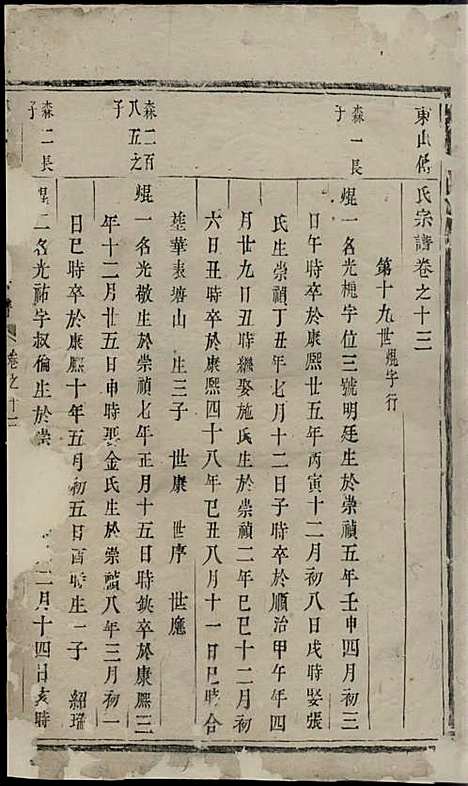 東山傅氏宗譜卷之十三
第十九世焜字行
森一長子
焜一名光梔字位三號明廷生於崇禎五年壬申四月初三
日午時卒於康熙廿五年丙寅十二月初八日戌時娶張
氏生崇禎丁丑年七月十二日子時卒於順治甲午年四
月廿九日丑時繼娶施氏生於崇禎二年己巳十二月初
六日丑時卒於康熙四十八年己丑八月十一日巳時合
塟華表塘山 生三子 世康 世序 世應
森二百八五之子
焜一名光敬生於崇禎七年正月十五日時缺卒於康熙三
年十二月廿五日申時娶金氏生於崇禎八年三月初一
日巳時卒於康熙十年五月初五日酉時生一子 紹瑞
森二長子
焜二名光祐字叔倫生於崇
二月十四日亥時
卷之十三